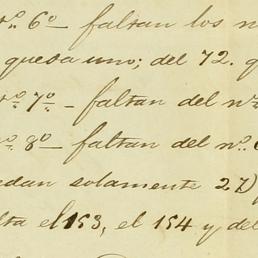 nº. 6º – faltan los n
quesa uno; del 72. q
nº. 7º – faltan del nº
º. 8º – faltan del nº. 6
edan solamente 27)
lta el 153, el 154 y del